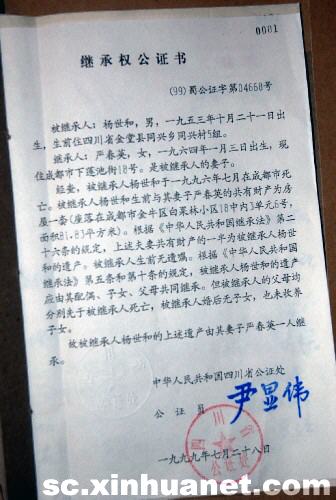 0001
继承权公证书
(99)蜀公证字第04660号
被继承人：杨世和，男，一九五三年十月二十一日出
生，生前住四川省金堂县同兴乡同兴村5组。
继承人：严春英，女，一九六四年一月三日出生，现
住成都市下莲池街18号。是被继承人的妻子。
经查，被继承人杨世和于一九九六年七月在成都市死
亡。被继承人杨世和生前与其妻子严春英的共有财产为房
屋一套(座落在成都市金牛区白果林小区18中内3单元6号，
面积81.83平方米)。根据《中华人民共和国继承法》第二
十六条的规定，上述夫妻共有财产的一半为被继承人杨世
和的遗产。被继承人生前无遗嘱。根据《中华人民共和国
继承法》第五条和第十条的规定，被继承人杨世和的遗产
应由其配偶、子女、父母共同继承。但被继承人的父母均
分别先于被继承人死亡，被继承人婚后无子女，也未收养
子女。
故被继承人杨世和的上述遗产由其妻子严春英一人继
承。
中华人民共和国四川省公证处
公证员 尹显伟
一九九九年七月二十八日
sc.xinhuanet.com